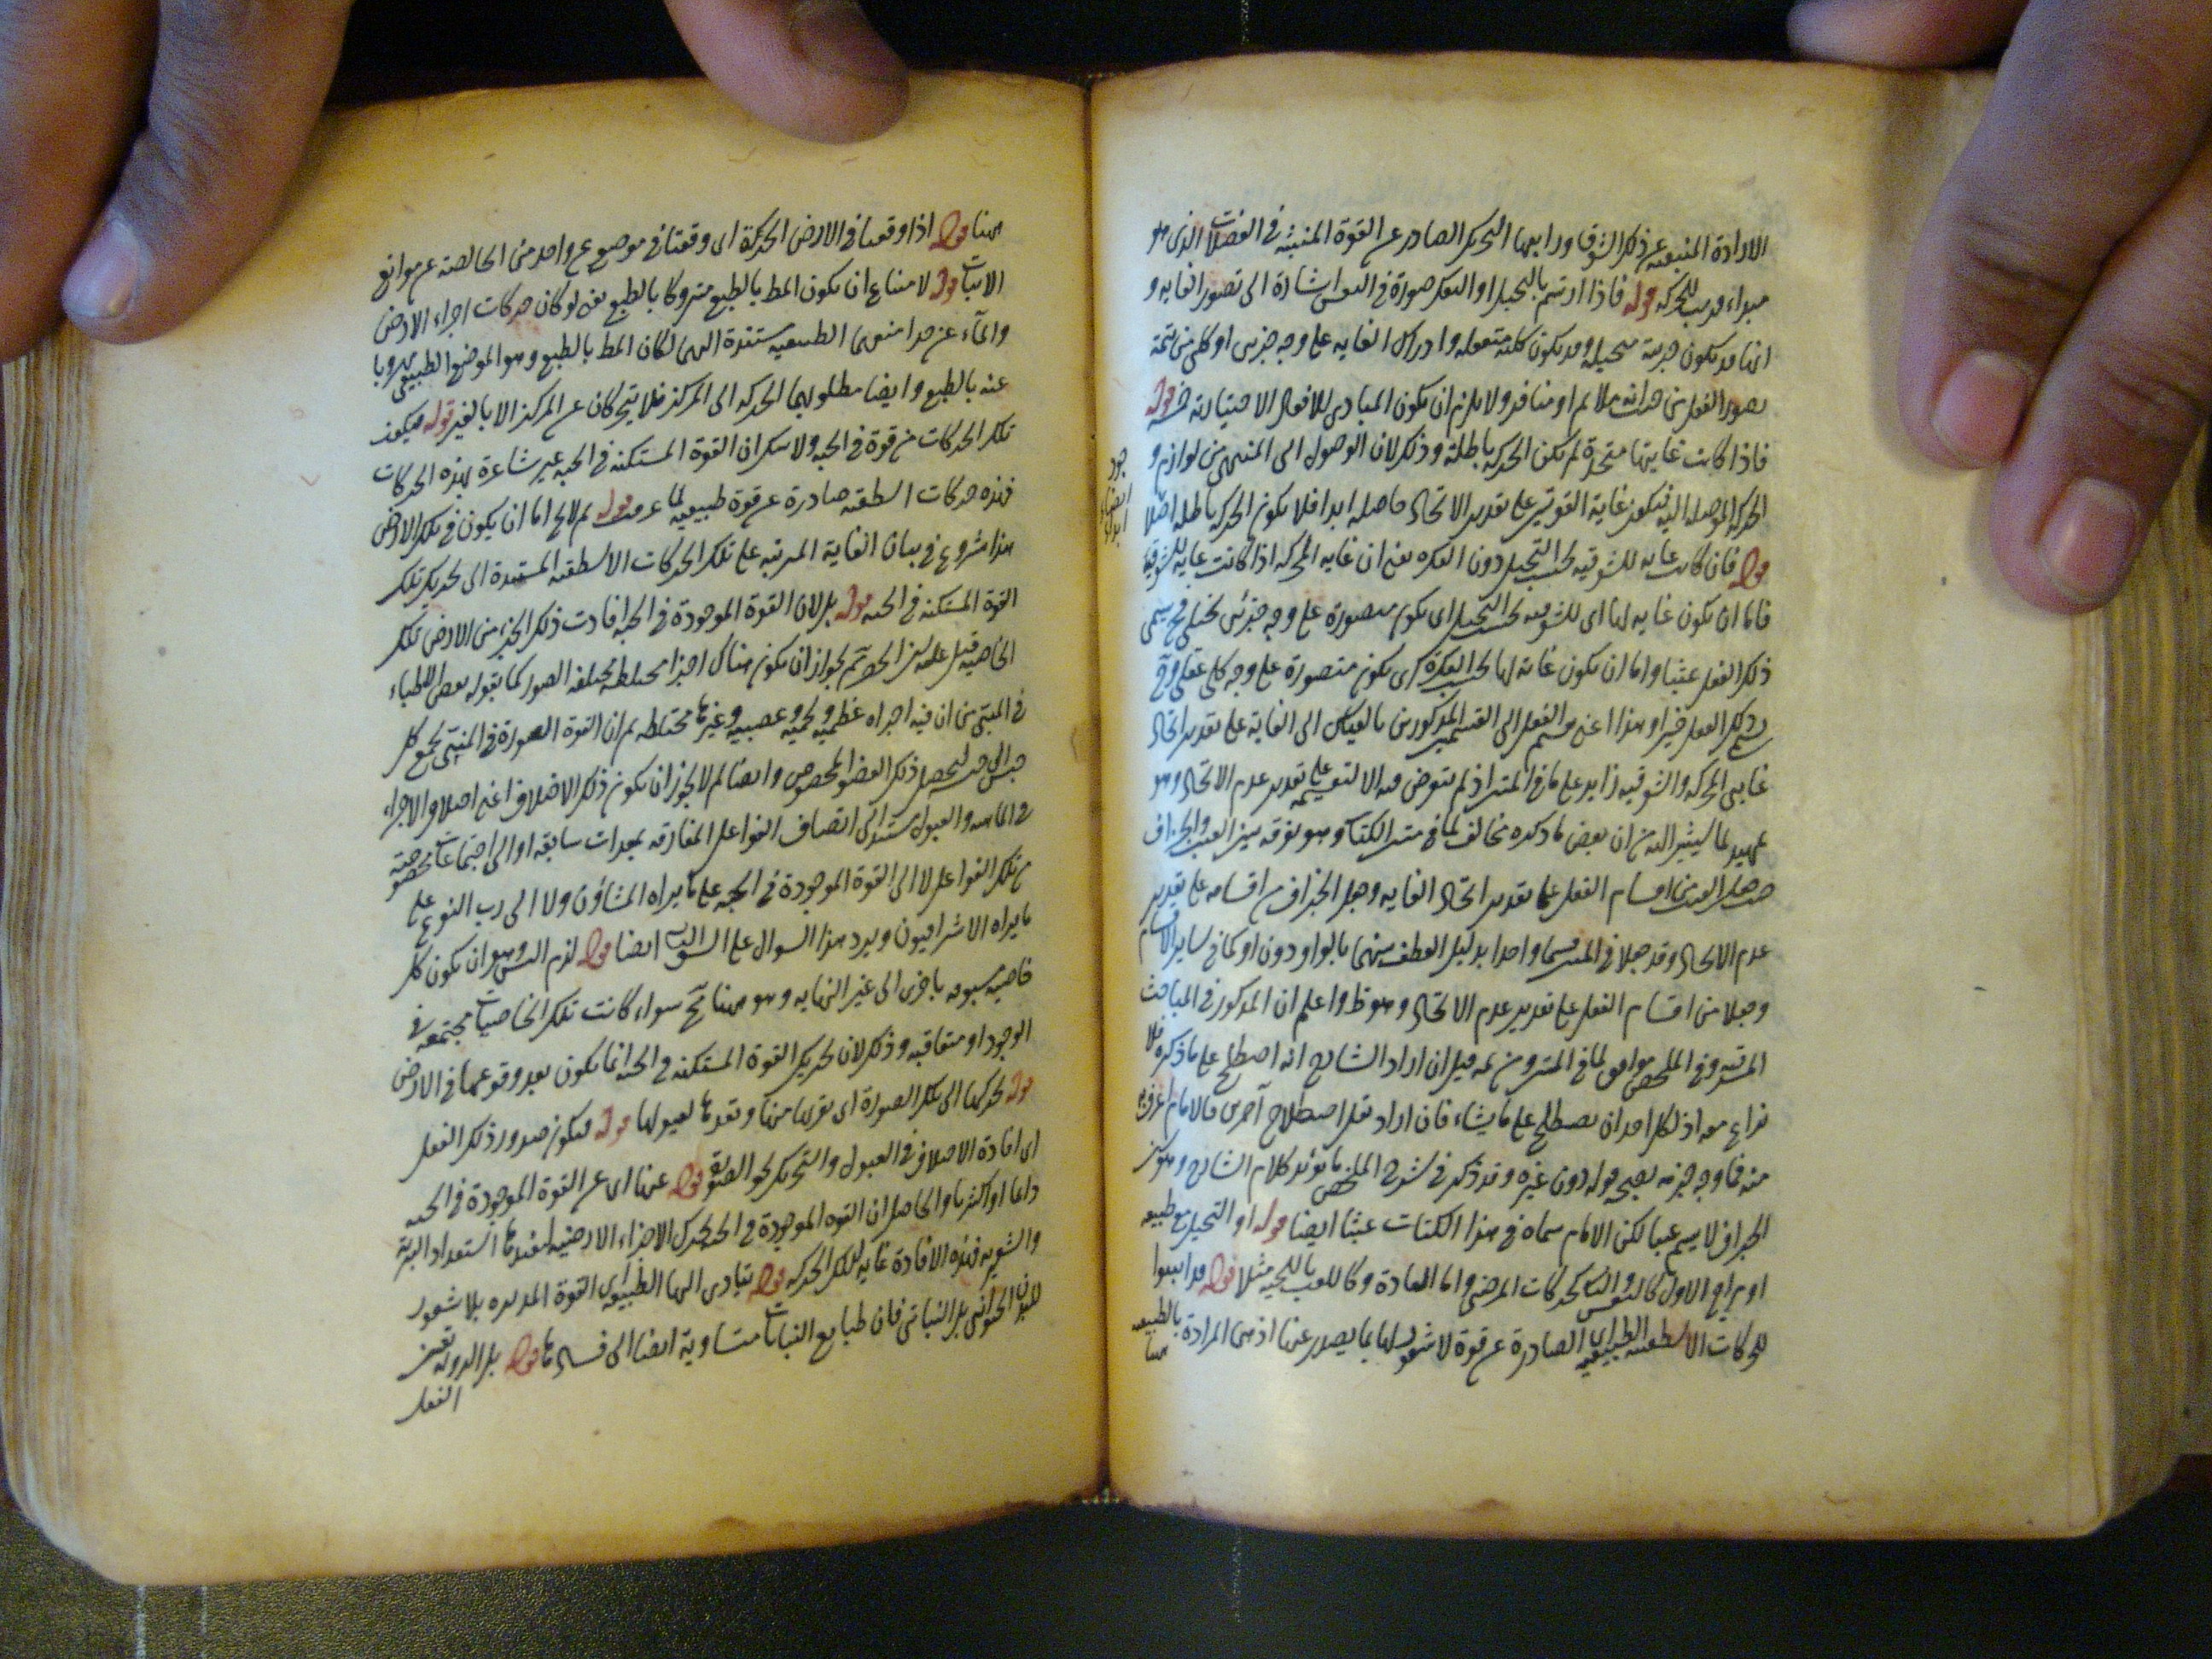 الارادة المنبعثة عن ذلك الشوق ورابعها التحريك الصادر عن القوة المنبثة في العضلات الذي هو
مبدأ قريب للحركة قوله فاذا ارتسم بالتخيل او التفكر صورة في النفس اشارة الى تصور الغاية و
انها قد يكون جزئية متخيلة وقد يكون كلية متعقلة وادراك الغاية على وجه جزئي او كلي من تتمة
تصور الفعل من حيث انه ملائم او منافر ولا يلزم ان يكون المبادي للافعال الاختيارية خمسة قوله
فاذا كانت غايتها متحدة لم يكن الحركة باطلة وذلك لان الوصول الى المنتهى من لوازم و
الحركة الموصلة اليه فيكون غاية القوتين على تقدير الاتحاد حاصلة ابدا فلا يكون الحركة باطلة اصلا
قوله فان كانت غاية للشوقية بحسب التخيل دون الفكرة يعني ان غاية المحركة اذا كانت غاية للشوقية
فاما ان يكون غاية لها اي للشوقية بحسب التخيل اي يكون متصورة على وجه جزئي تخيلي فح يسمى
ذلك الفعل عبثا واما ان يكون غاية لها بحسب الفكرة اي يكون متصورة على وجه كلي عقلي وح
يسمى ذلك الفعل خيرا وهذا اعني قسم الفعل الى القسمين المذكورين بالقياس الى الغاية على تقدير اتحاد
غايتي المحركة والشوقية زايد على ما في المتن اذ لم يتعرض فيه الا لتقسيمه على تقدير عدم الاتحاد وهو
تمهيد لما يشير اليه من ان بعض ما ذكره مخالف لما في متن الكتاب وهو تفرقه بين العبث والجزاف
حيث جعل العبث من اقسام الفعل على تقدير اتحاد الغاية وجعل الجزاف من اقسامه على تقدير
عدم الاتحاد وقد جعلا في المتن قسما واحدا بدليل العطف بينهما بالواو دون او كما في ساير الاقسام
وجعلا من اقسام الفعل على تقدير عدم الاتحاد وهو ظ واعلم ان المذكور في المباحث
المشرقية وفي الملخص موافق لما في المتن ومن ثمة قيل ان اراد الشارح انه اصطلح على ما ذكره فلا
نزاع معه اذ لكل احد ان يصطلح على ما يشاء فان اراد نقل اصطلاح آخرين فالامام اعرف به
منه فما وجه جزمه بصحة قوله دون غيره وقد ذكر في شرح الملخص ما يؤيد كلام الشارح وهو كنز
الجزاف لا يسمى عبثا لكن الامام سماه في هذا الكتاب عبثا ايضا قوله او التخيل مع طبيعة
او مزاج الاول كالتنفس والثاني كحركات المرضى واما العادة وكاللعب باللحية مثلا قوله قد اثبتوا
للحركات الاسطقسية الطبيعية اي الصادرة عن قوة لا شعور لها بما يصدر عنها اذ هي المرادة بالطبيعة
ههنا
جود
ايضا
ابدا
ههنا قوله اذا وقعتا في الارض الحركة اي وقعتا في موضع واحد من الخالصة عن موانع
الانبات قوله لامتناع ان يكون المط بالطبع متروكا بالطبع يعني لو كان حركات اجزاء الارض
والماء عن حد مستندة اليها لكان المط بالطبع وهو الموضع الطبيعي مهروبا
عنه بالطبع وايضا مطلوبهما الحركة الى المركز فلا يتحركان عن المركز الا بالغير قوله فيكون
تلك الحركات من قوة في الحبة ولا شك ان القوة المستكنة في الحبة غير شاعرة بهذه الحركات
فهذه حركات اسطقسية صادرة عن قوة طبيعية لما عرفت قوله ثم لا يخ اما ان يكون في تلك الارض
هذا شروع في بيان الغاية المرتبة على تلك الحركات الاسطقسية المستندة الى تحريك تلك
القوة المستكنة في الحبة قوله بل لان القوة الموجودة في الحبة افادت ذلك الجزء من الارض تلك
الخاصية قيل عليه هذا الحصر ثم لجواز ان يكون هناك اجزاء مختلطة مختلفة الصور كما يقوله بعض الاطباء
في المني من ان فيه اجزاء عظمية ولحمية وعصبية وغيرها مختلطة ثم ان القوة المصورة في المني تجمع كل
جنس الى جنسه ليحصل ذلك العضو المخصوص وايضا لم لا يجوز ان يكون ذلك الاختلاف اعني اختلاف الاجزاء
في الماهية والقبول مستندا الى اتصاف الفواعل المفارقة بمعدات سابقة او الى اجتماعات مخصوصة
من تلك الفواعل لا الى القوة الموجودة في الحبة على ما يراه المشاؤن ولا الى رب النوع على
ما يراه الاشراقيون ويرد هذا السؤال على الشق الثاني ايضا قوله لزم التس وهو ان يكون كل
خاصية مسبوقة باخرى الى غير النهاية وهو ههنا مح سواء كانت تلك الخاصيات مجتمعة في
الوجود او متعاقبة وذلك لان تحريك القوة المستكنة في الحبة انما يكون بعد وقوعها في الارض
قوله تحركها الى تلك الصورة اي تقربها منها وتعدها لقبولها قوله فيكون صدور ذلك الفعل
اي افادة الاختلاف في القبول والتحريك نحو الصورة قوله عنها اي عن القوة الموجودة في الحبة
دائما او اكثريا والحاصل ان القوة الموجودة في الحبة تحرك الاجزاء الارضية لتفيدها استعداد البرية
والشعيرية فهذه الافادة غاية لتلك الحركة قوله يتادى اليها الطبيعة اي القوة المدبرة بلا شعور
للبدن الحيواني بل النباتي فان طبايع النباتات متساوية ايضا الى فسادها قوله بل الروية تعين
الفعل